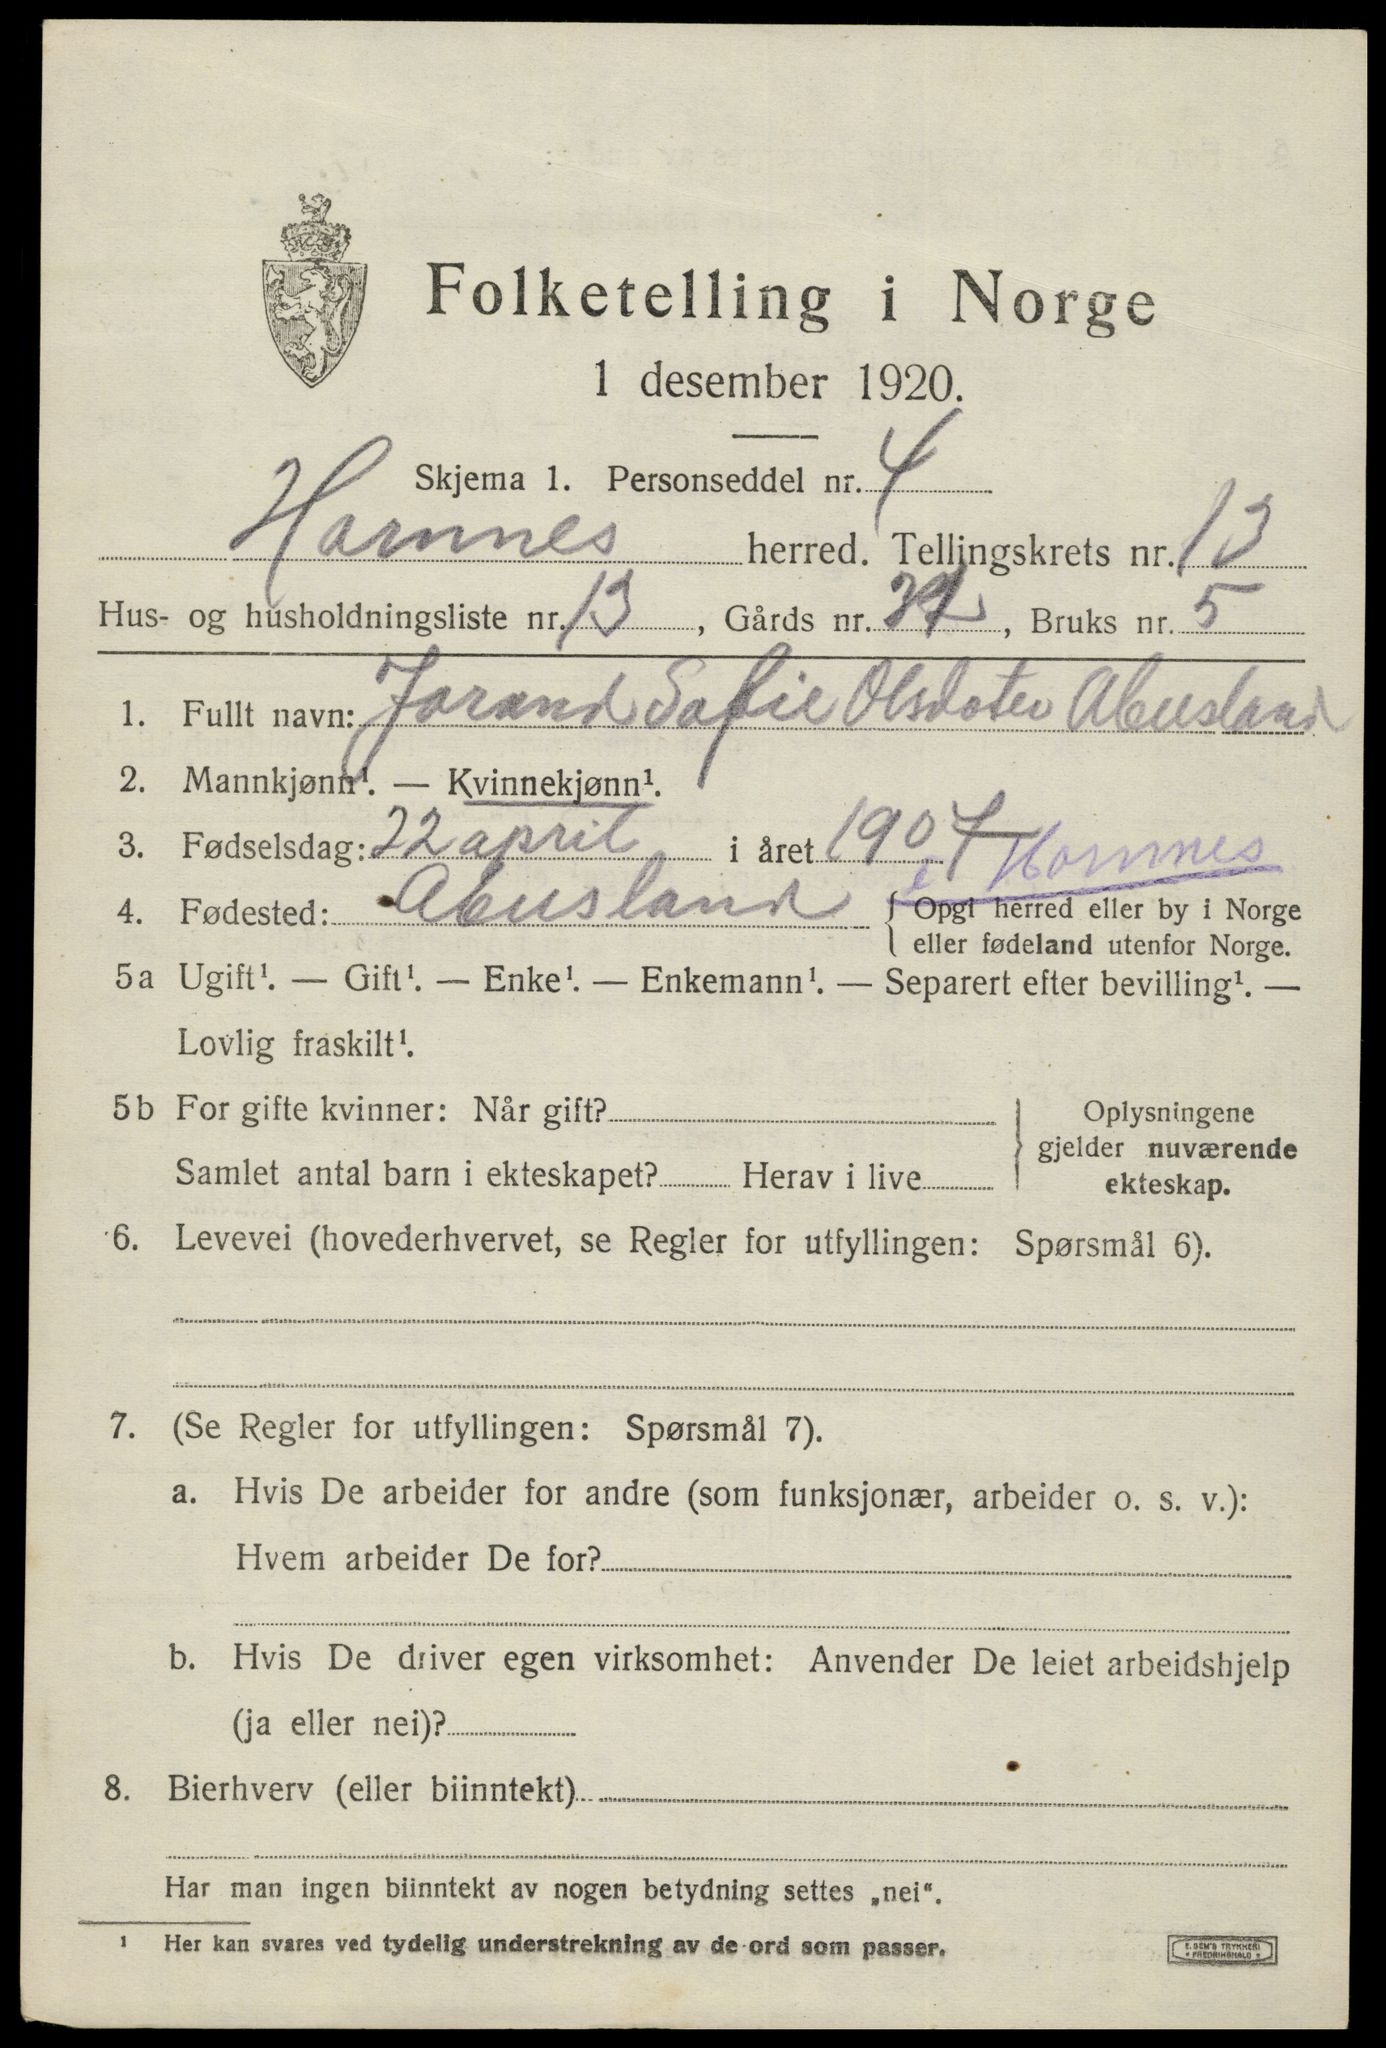 Folketelling i Norge
1 desember 1920.
Skjema 1. Personseddel nr. 4
Hornnes herred. Tellingskrets nr. 13
Hus- og husholdningsliste nr. 13, Gårds nr., Bruks nr. 5
1. Fullt navn: Jorand Sofie Olsdoter Abusland
2. Mannkjønn¹. — Kvinnekjønn¹.
3. Fødselsdag: 22 april i året 1907
i Hornnes
4. Fødested: Abusland { Opgi herred eller by i Norge
eller fødeland utenfor Norge.
5a Ugift¹. — Gift¹. — Enke¹. — Enkemann¹. — Separert efter bevilling¹. —
Lovlig fraskilt¹.
5b For gifte kvinner: Når gift? } Oplysningene
gjelder nuværende
Samlet antal barn i ekteskapet? Herav i live ekteskap.
6. Levevei (hovederhvervet, se Regler for utfyllingen: Spørsmål 6).
7. (Se Regler for utfyllingen: Spørsmål 7).
a. Hvis De arbeider for andre (som funksjonær, arbeider o. s. v.):
Hvem arbeider De for?
b. Hvis De driver egen virksomhet: Anvender De leiet arbeidshjelp
(ja eller nei)?
8. Bierhverv (eller biinntekt)
Har man ingen biinntekt av nogen betydning settes „nei“.
¹ Her kan svares ved tydelig understrekning av de ord som passer.
E. SEM'S TRYKKERI
FREDRIKSHALD